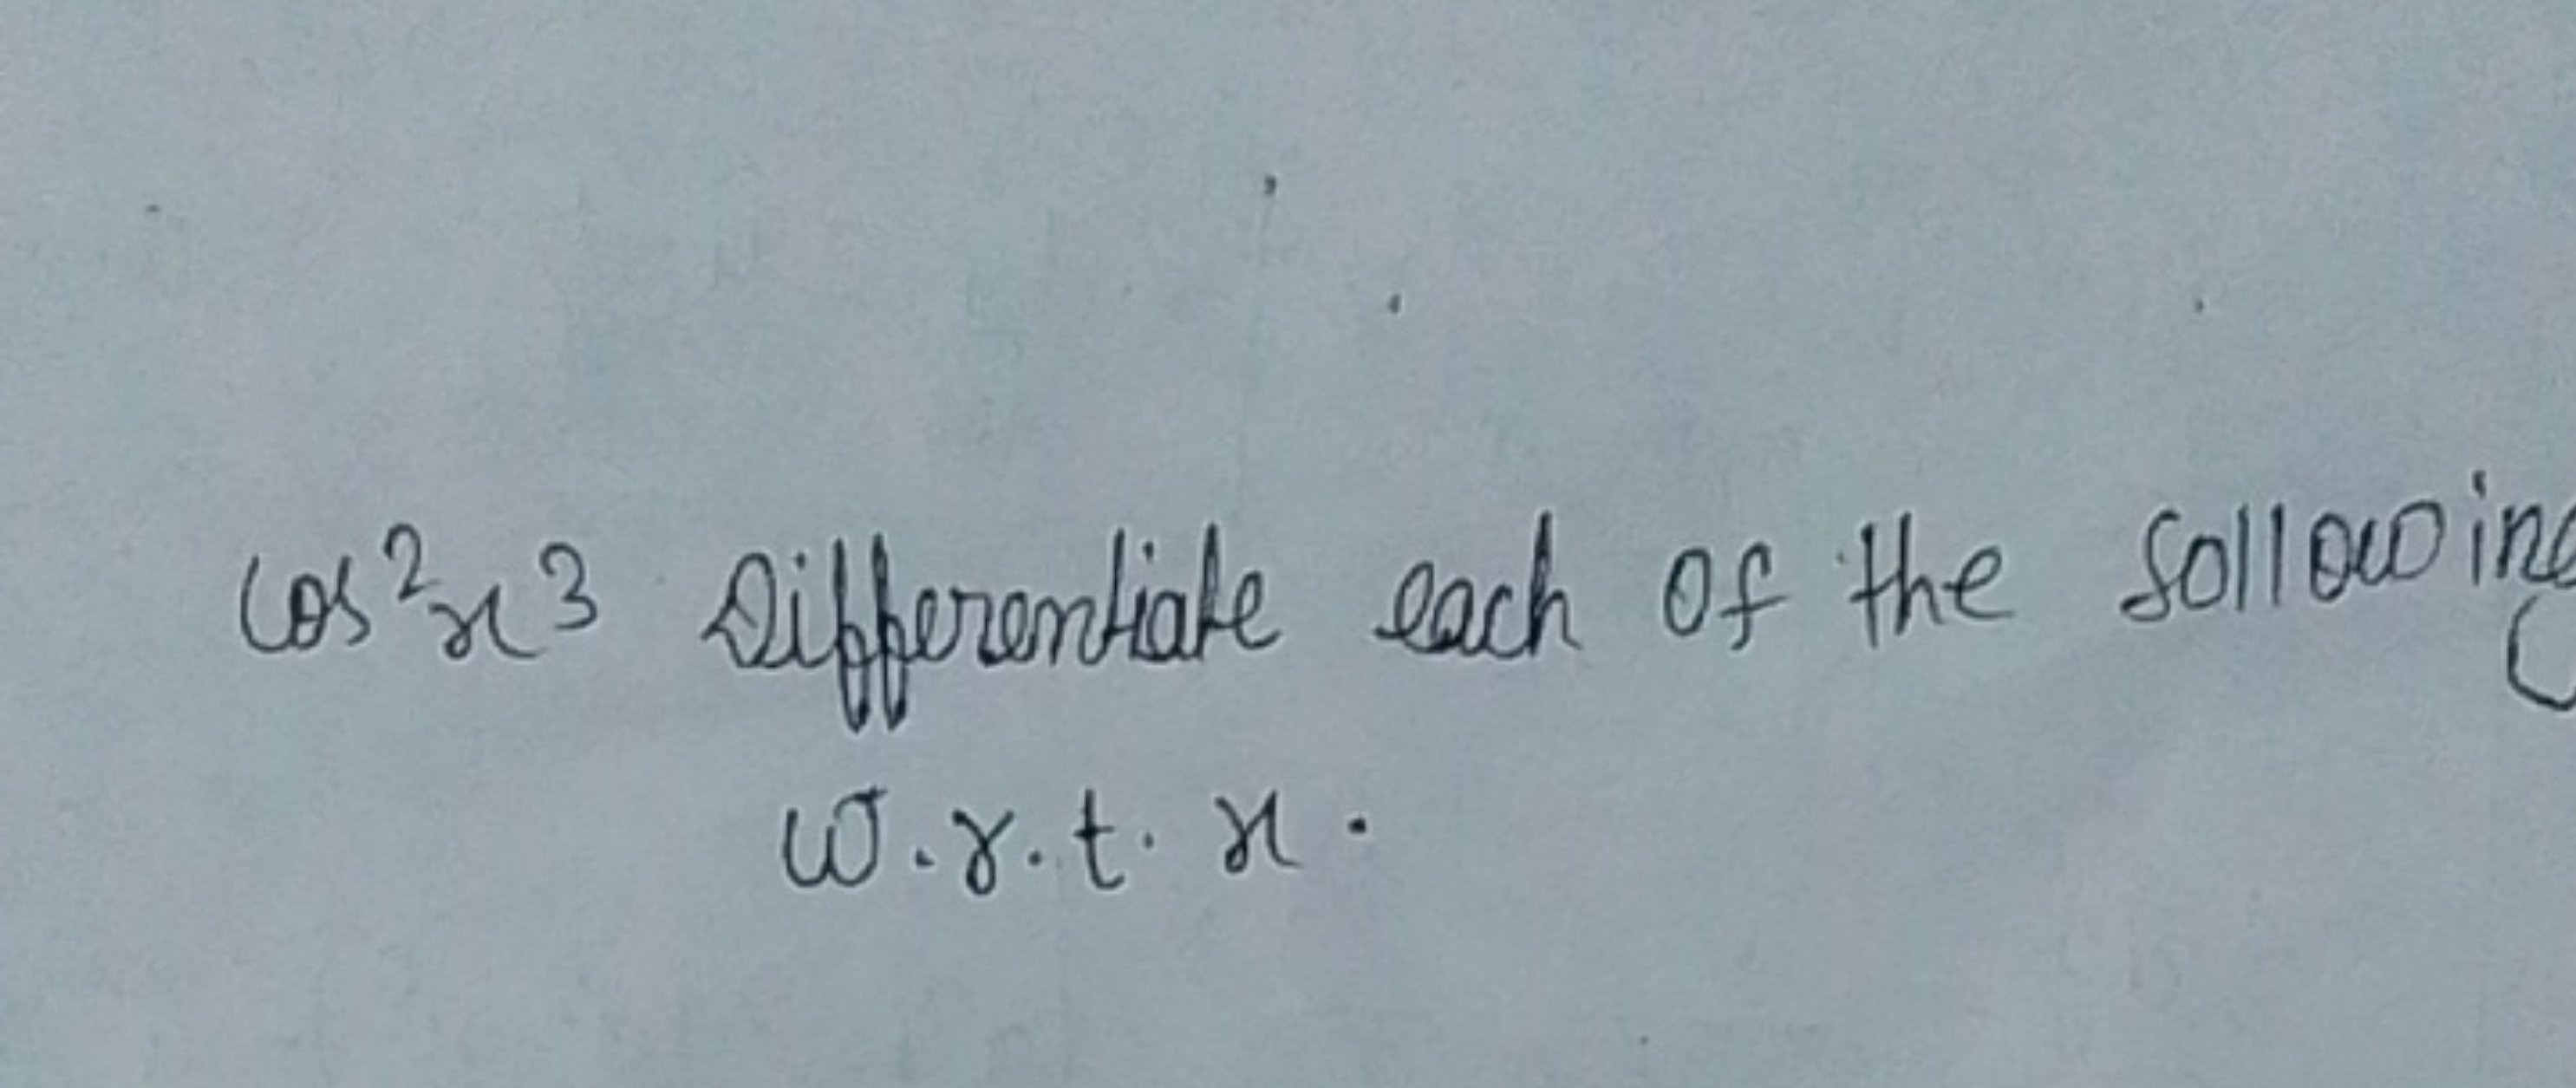 cos²x3 Differentiate each of the following
w.r.t. x.